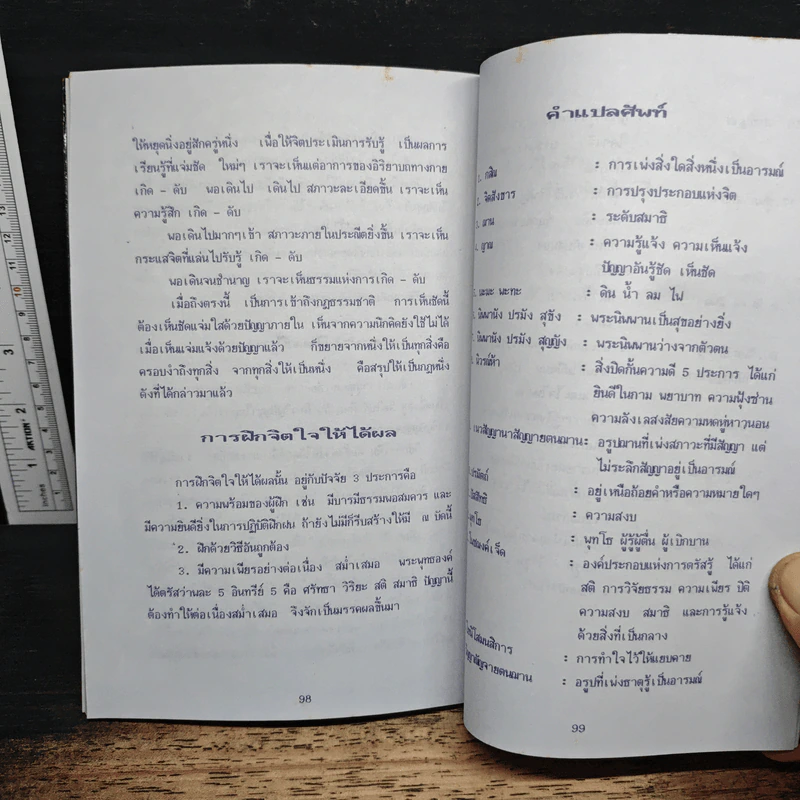 ให้หยุดนิ่งอยู่สักครู่หนึ่ง เพื่อให้จิตประเมินการรับรู้ เป็นผลการ
เรียนรู้ที่แจ่มชัด ใหม่ๆ เราจะเห็นแต่อาการของอิริยาบถทางกาย
เกิด - ดับ พอเดินไป เดินไป สภาวะละเอียดขึ้น เราจะเห็น
ความรู้สึก เกิด - ดับ
พอเดินไปมากๆเข้า สภาวะภายในประณีตยิ่งขึ้น เราจะเห็น
กระแสจิตที่แล่นไปรับรู้ เกิด - ดับ
พอเดินจนชำนาญ เราจะเห็นธรรมแห่งการเกิด - ดับ
เมื่อถึงตรงนี้ เป็นการเข้าถึงกฎธรรมชาติ การเห็นชัดนี้
ต้องเห็นชัดแจ่มใสด้วยปัญญาภายใน เห็นจากความนึกคิดยังใช้ไม่ได้
เมื่อเห็นแจ่มแจ้งด้วยปัญญาแล้ว ก็ขยายจากหนึ่งให้เป็นทุกสิ่งคือ
ครอบงำถึงทุกสิ่ง จากทุกสิ่งให้เป็นหนึ่ง คือสรุปให้เป็นกฎหนึ่ง
ดังที่ได้กล่าวมาแล้ว
การฝึกจิตใจให้ได้ผล
การฝึกจิตใจให้ได้ผลนั้น อยู่กับปัจจัย 3 ประการคือ
1. ความพร้อมของผู้ฝึก เช่น มีบารมีธรรมพอสมควร และ
มีความยินดียิ่งในการปฏิบัติฝึกฝน ถ้ายังไม่มีก็รีบสร้างให้มี ณ บัดนี้
2. ฝึกด้วยวิธีอันถูกต้อง
3. มีความเพียรอย่างต่อเนื่อง สม่ำเสมอ พระพุทธองค์
ได้ตรัสว่าพละ 5 อินทรีย์ 5 คือ ศรัทธา วิริยะ สติ สมาธิ ปัญญานี้
ต้องทำให้ต่อเนื่องสม่ำเสมอ จึงจักเป็นมรรคผลขึ้นมา
98
คำแปลศัพท์
1. กสิน : การเพ่งสิ่งใดสิ่งหนึ่งเป็นอารมณ์
2. จิตสังขาร : การปรุงประกอบแห่งจิต
3. ฌาน : ระดับสมาธิ
4. ญาณ : ความรู้แจ้ง ความเห็นแจ้ง
ปัญญาอันรู้ชัด เห็นชัด
นะมะ พะทะ : ดิน น้ำ ลม ไฟ
นิพพานัง ปรมัง สุขัง : พระนิพพานเป็นสุขอย่างยิ่ง
นิพพานัง ปรมัง สุญญัง : พระนิพพานว่างจากตัวตน
นิวรณ์ห้า : สิ่งปิดกั้นความดี 5 ประการ ได้แก่
ยินดีในกาม พยาบาท ความฟุ้งซ่าน
ความลังเลสงสัยความหดหู่หาวนอน
นาสัญญายตนฌาน : อรูปฌานที่เพ่งสภาวะที่มีสัญญา แต่
ไม่ระลึกสัญญาอยู่เป็นอารมณ์
: อยู่เหนือถ้อยคำหรือความหมายใดๆ
: ความสงบ
: พุทโธ ผู้รู้ผู้ตื่น ผู้เบิกบาน
: องค์ประกอบแห่งการตรัสรู้ ได้แก่
สติ การวิจัยธรรม ความเพียร ปิติ
ความสงบ สมาธิ และการรู้แจ้ง
ด้วยสิ่งที่เป็นกลาง
: การทำใจไว้ให้แยบคาย
: อรูปที่เพ่งธาตุรู้เป็นอารมณ์
99